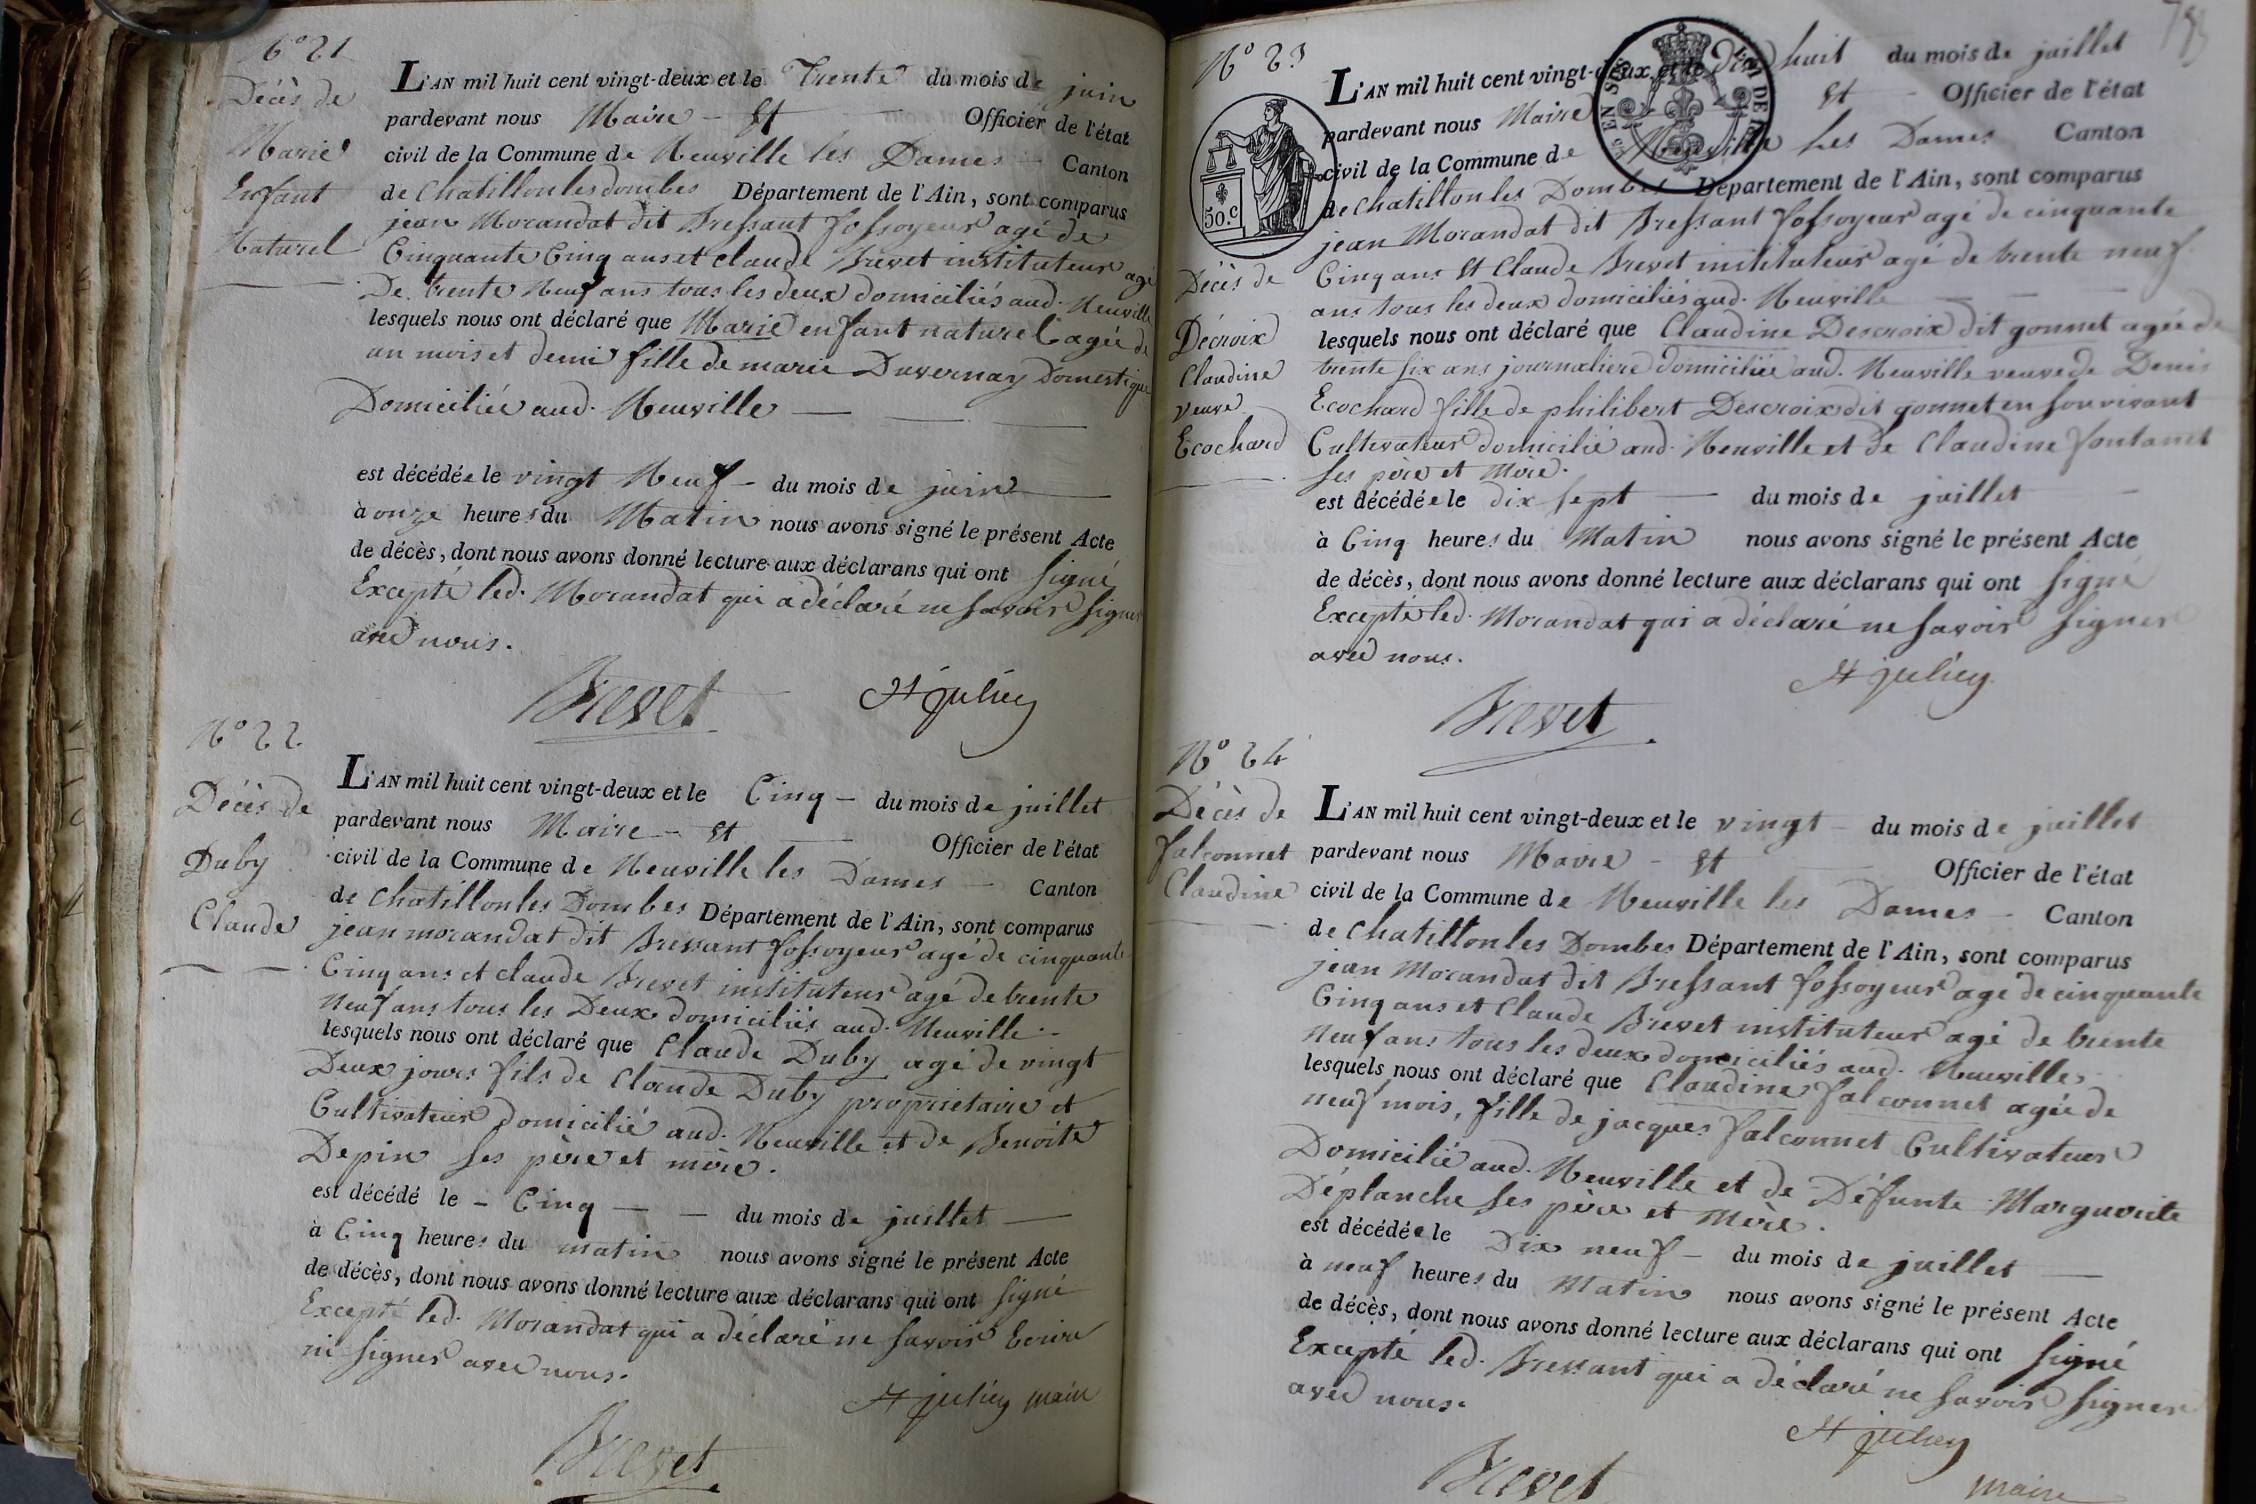 N° 21
Décès de
Marie
Enfant
Naturel
L'AN mil huit cent vingt-deux et le Trente du mois de juin
pardevant nous Maire - Et - Officier de l'état
civil de la Commune de Neuville les Dames - Canton
de Chatillon les dombes Département de l'Ain, sont comparus
jean Morandat dit Bressant fossoyeur agé de
Cinquante Cinq ans et claude Brevet instituteur agé
De trente Neuf ans tous les deux domiciliés aud. Neuville
lesquels nous ont déclaré que Marie enfant naturel agée de
un mois et demi fille de marie Duvernay Domestique
Domiciliée aud. Neuville
est décédée le vingt Neuf - du mois de juin
à onze heures du Matin nous avons signé le présent Acte
de décès, dont nous avons donné lecture aux déclarans qui ont signé
Excepté led. Morandat qui a déclaré ne savoir signer
avec nous.
Brevet St julien
N° 22
Décès de
Duby
Claude
L'AN mil huit cent vingt-deux et le Cinq - du mois de juillet
pardevant nous Maire - Et - Officier de l'état
civil de la Commune de Neuville les Dames - Canton
de Chatillon les Dombes Département de l'Ain, sont comparus
jean morandat dit Bressant fossoyeur agé de cinquante
Cinq ans et claude Brevet instituteur agé de trente
Neuf ans tous les Deux domiciliés aud. Neuville -
lesquels nous ont déclaré que Claude Duby agé de vingt
Deux jours fils de Claude Duby propriétaire et
Cultivateur domicilié aud. Neuville et de Benoite
Depin ses père et mère.
est décédé le - Cinq - - du mois de juillet
à Cinq heures du matin nous avons signé le présent Acte
de décès, dont nous avons donné lecture aux déclarans qui ont signé
Excepté led. Morandat qui a déclaré ne savoir Ecrire
ni signer avec nous.
St julien maire
Brevet
N° 23
50.c
Décès de
Décroix
Claudine
veuve
Ecochard
L'AN mil huit cent vingt-deux et le Dix huit du mois de juillet
pardevant nous Maire Et - Officier de l'état
civil de la Commune de Neuville les Dames Canton
de chatillon les Dombes Département de l'Ain, sont comparus
jean Morandat dit Bressant fossoyeur agé de cinquante
Cinq ans Et Claude Brevet instituteur agé de trente neuf
ans tous les deux domiciliés aud. Neuville
lesquels nous ont déclaré que Claudine Descroix dit gonnet agée de
trente six ans journaliere domiciliée aud. Neuville veuve de Denis
Ecochard fille de philibert Descroix dit gonnet en son vivant
Cultivateur domicilié aud. Neuville et de Claudine fontanet
ses père et Mère.
est décédée le dix sept du mois de juillet
à Cinq heures du Matin nous avons signé le présent Acte
de décès, dont nous avons donné lecture aux déclarans qui ont signé
Excepté led. Morandat qui a déclaré ne savoir signer
avec nous.
St julien
Brevet
N° 24
Décès de
falconnet
Claudine
L'AN mil huit cent vingt-deux et le vingt - du mois de juillet
pardevant nous Maire - Et - Officier de l'état
civil de la Commune de Neuville les Dames - Canton
de Chatillon les Dombes Département de l'Ain, sont comparus
jean Morandat dit Bressant fossoyeur agé de cinquante
Cinq ans et Claude Brevet instituteur agé de trente
Neuf ans tous les deux domiciliés aud. Neuville
lesquels nous ont déclaré que Claudine falconnet agée de
neuf mois, fille de jacques falconnet Cultivateur
Domicilié aud. Neuville et de Défunte Marguerite
Déplanche ses père et Mère.
est décédée le Dix neuf - du mois de juillet
à neuf heures du Matin nous avons signé le présent Acte
de décès, dont nous avons donné lecture aux déclarans qui ont signé
Excepté led. Bressant qui a déclaré ne savoir signer
avec nous.
St julien
Brevet maire